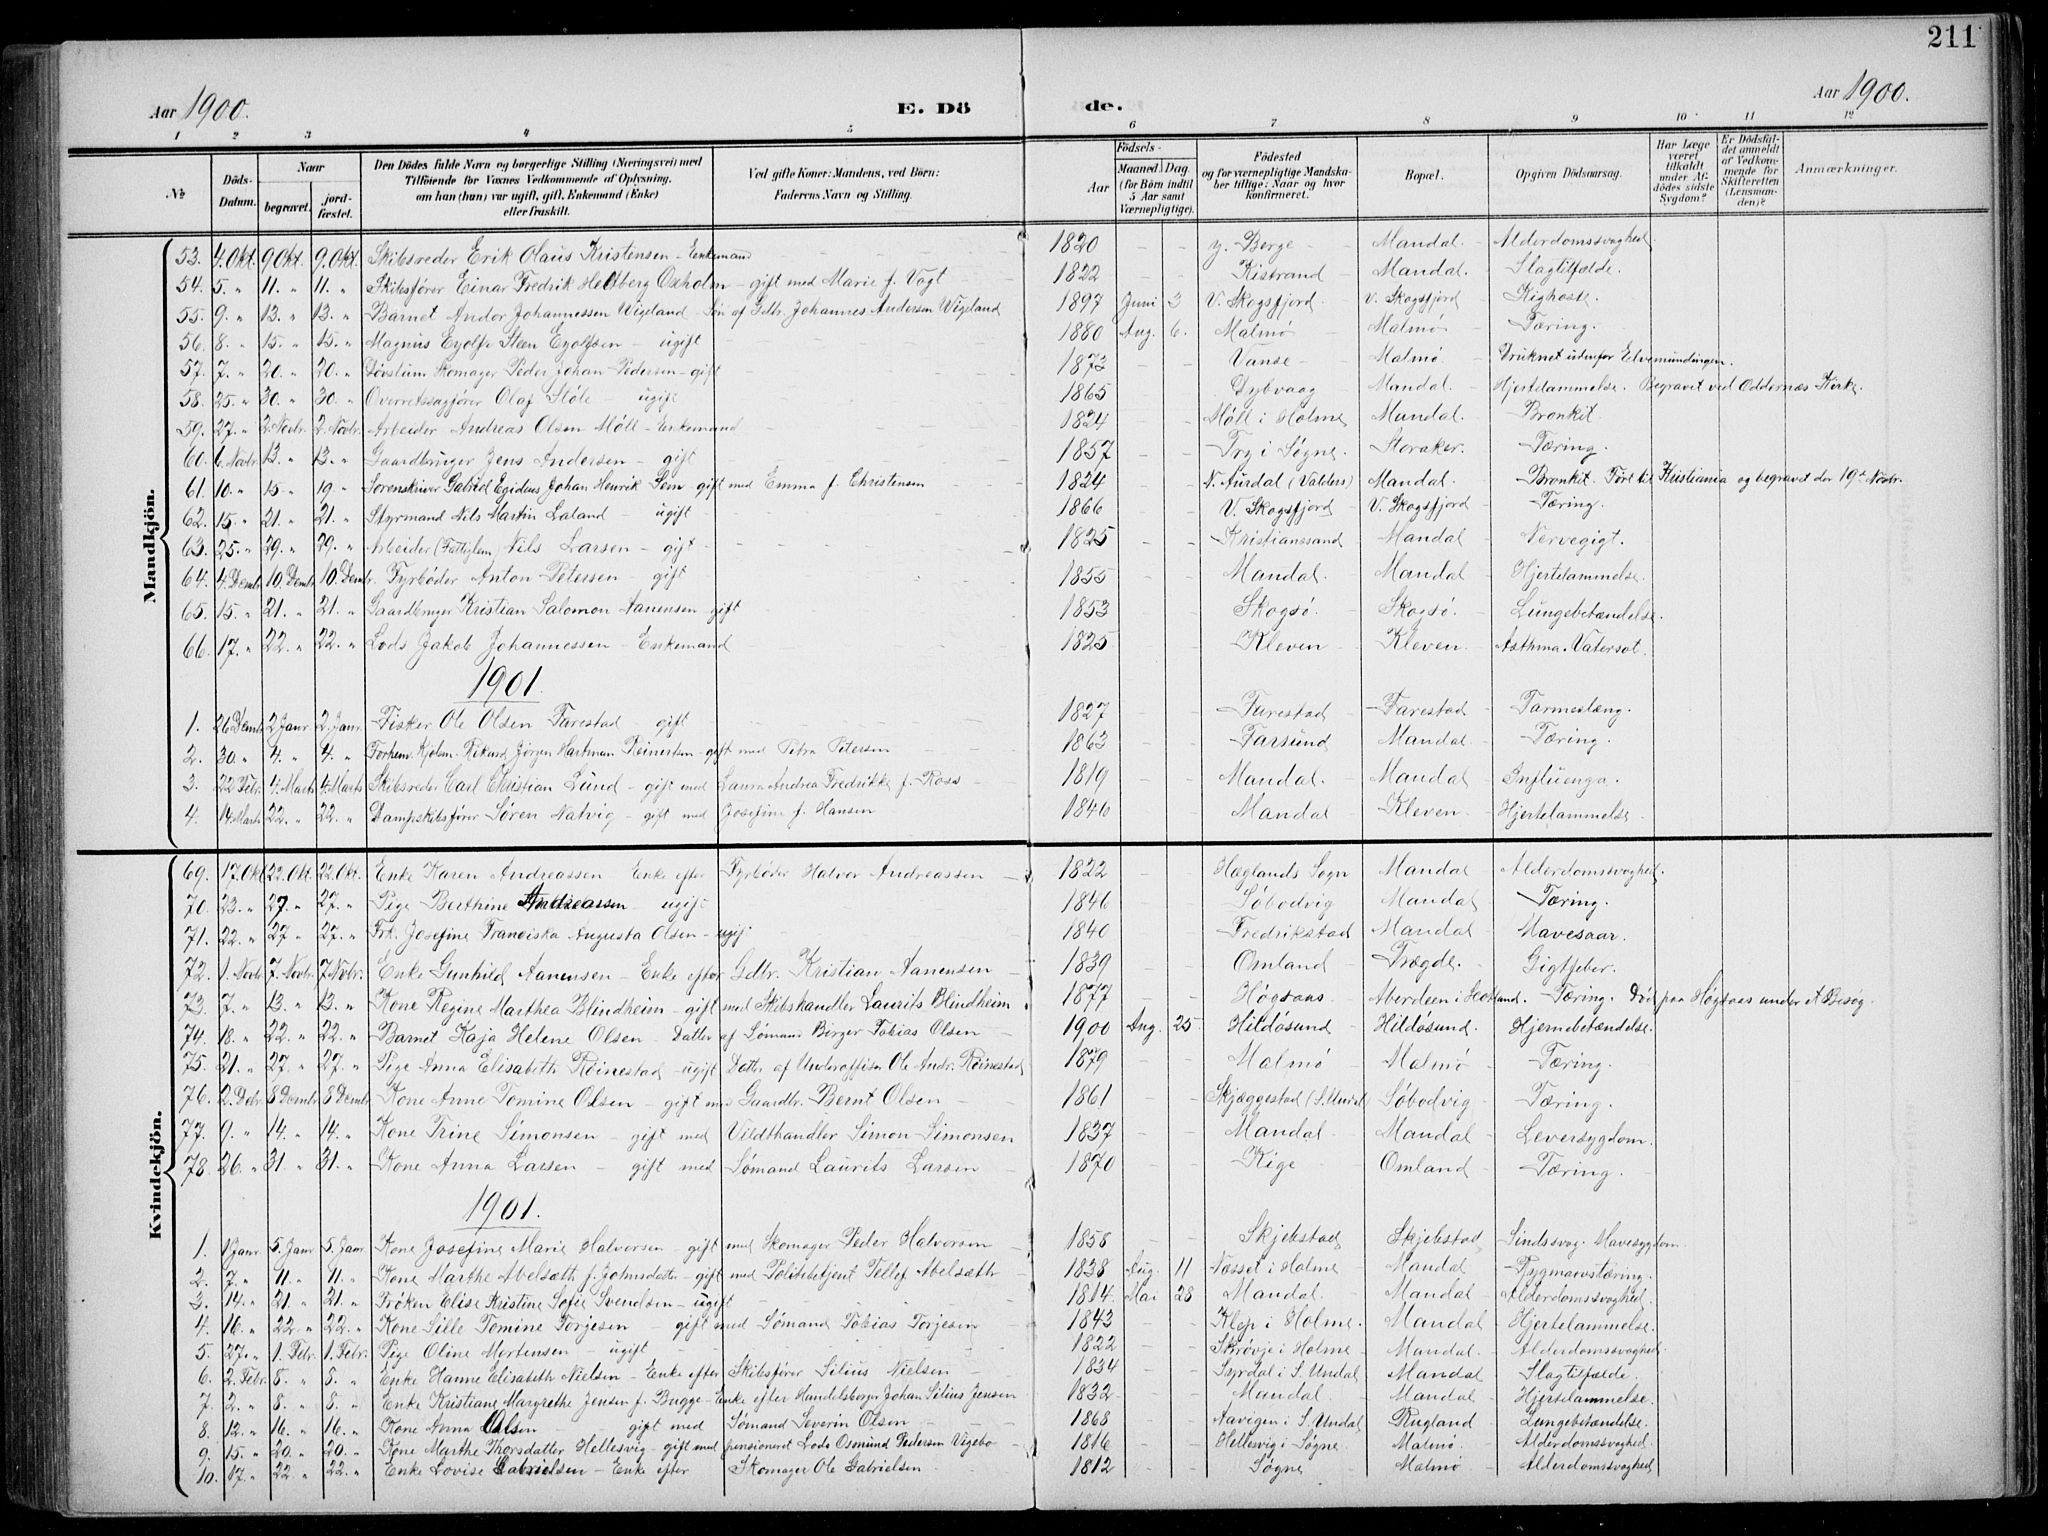 211
Aar 1900. E. Dö de. Aar 1900.
1 2 3 4 5 6 7 8 9 10 11 12
№ Döds-Datum. Naar begravet. jord-fæstet. Den Dödes fulde Navn og borgerlige Stilling (Næringsvei) med Tilföiende for Voxnes Vedkommende af Oplysning, om han (hun) var ugift, gift, Enkemand (Enke) eller fraskilt. Ved gifte Koner: Mandens, ved Börn: Faderens Navn og Stilling. Födsels- Aar Maaned Dag. (for Börn indtil 5 Aar samt Værnepligtige). Födested og for værnepligtige Mandskaber tillige: Naar og hvor konfirmeret. Bopæl. Opgiven Dödsaarsag. Har Læge været tilkaldt under Afdödes sidste Sygdom? Er Dödsfaldet anmeldt af Vedkommende for Skifteretten (Lensmanden)? Anmærkninger.
Mandkjön.
53. 4. Okt. 9 Okt. 9. Okt. Skibsreder Erik Olaus Kristensen - Enkemand 1820 - - y. Berge - Mandal. - Alderdomssvaghed.
54. 5. " 11. " 11. " Skibsfører Einar Fredrik Hedberg Oxholm - gift med Marie f. Vogt 1822 - - Kistrand - Mandal. - Slagtilfælde.
55. 9. " 13. " 13. " Barnet Andor Johannessen Wigeland - Søn af Gdbr. Johannes Andersen Wigeland 1897 Juni 3 V. Skogsfjord - V. Skogsfjord - Kighoste.
56. 8. " 15. " 15. " Magnus Eyolf Steen Eyolfsen - ugift 1880 Aug. 6. Malmø - Malmø - Tæring.
57. 7. " 20. " 20. " Skomager Peder Johan Pedersen - gift 1873 - - Vanse - Malmø. - Druknet udenfor Elvemundingen.
58. 25. " 30. " 30. " Overretssagfører Olaf Støle - ugift 1865 - - Dybvaag - Mandal. - Hjertelammelse. Begravet ved Oddernæs Kirke.
59. 27. " 2 Novbr. 2. Novbr. Arbeider Andreas Olsen Møll - Enkemand 1824 - - Møll i Holme - Mandal - Bronkit.
60. 6 Novbr. 13. " 13. " Gaardbruger Jens Andersen - gift 1857 - - Try i Søgne. - Storaker. - Tæring.
61. 10. " 15 " 19. " Sorenskriver Gabriel Egidius Johan Henrik Sem - gift med Emma f. Christensen 1824 - - N. Aurdal (Valders) - Mandal. - Bronkit. Ført til Kristiania og begravet der 19de Novbr.
62. 15. " 21. " 21. " Styrmand Nils Martin Laland - ugift 1866 - - V. Skogsfjord - V. Skogsfjord - Tæring.
63. 25. " 29. " 29. " Arbeider (Fattiglem) Nils Larsen - gift 1825 - - Kristianssand - Mandal - Nervegigt.
64. 4 Decmbr. 10. Decmbr. 10. Decmbr. Fyrbøder Anton Petersen - gift 1855 - - Mandal. - Mandal - Hjertelammelse.
65. 15. " 21. " 21. " Gaardbruger Kristian Salomon Aanensen - gift 1853 - - Skogsø. - Skogsø. - Lungebetændelse.
66. 17. " 22. " 22. " Lods Jakob Johannessen - Enkemand 1825 - - Kleven - Kleven. - Asthma. Vatersot.
1901.
1. 26 Decmbr. 2 Janr. 2. Janr. Fisker Ole Olsen Farestad - gift 1827 - - Farestad - Farestad - Tarmeslæng.
2. 30. " 4. " 4. " Rikard Jørgen Hartman Reinertsen - gift med Petra Petersen 1863 - - Farsund - Mandal. - Tæring.
3. 22 Febr. 4. Marts 4. Marts Skibsreder Carl Christian Lund - gift med Laura Andrea Fredrikke f. Ross 1819 - - Mandal. - Mandal - Influenza.
4. 14. Marts 22. " 22. " Dampskibsfører Søren Natvig - gift med Josefine f. Hansen 1846 - - Mandal - Kleven. - Hjertelammelse.
Kvindekjön.
69. 17. Okt. 22. Okt. 22. Okt. Enke Karen Andreassen Enke efter Fyrbøder Halvor Andreassen - 1822 - - Hæglands Sogn - Mandal - Alderdomssvaghed.
70. 23. " 27. " 27. " Pige Berthine Andreassen - ugift 1846 - - Søbodvig - Mandal - Tæring.
71. 22. " 27 " 27. " Frk. Josefine Franciska Augusta Olsen - ugift 1840 - - Fredrikstad - Mandal - Mavesaar.
72. 1. Novbr. 7. Novbr. 7. Novbr. Enke Gunhild Aanensen - Enke efter Gdbr. Kristian Aanensen 1839 - - Omland - Trægde. - Gigtfeber.
73. 7. " 13. " 13. " Kone Regine Marthea Blindheim - gift med Skibshandler Laurits Blindheim 1877 - - Høgsaas - Aberdeen i Scotland. - Tæring. Død paa Høgsaas under et Besøg.
74. 18. " 22. " 22. " Barnet Kaja Helene Olsen - Datter af Sømand Birger Tobias Olsen - 1900 Aug. 25 Hildøsund - Hildøsund. - Hjernebetændelse.
75. 21. " 27. " 27. " Pige Anna Elisabeth Röinestad - ugift Datter af Underoffiser Ole Andr. Röinestad 1879 - - Malmø - Malmø - Tæring.
76. 2. Debr. 8 Decmbr. 8 Decmbr. Kone Anne Tomine Olsen - gift med Gaardbr. Bernt Olsen - 1861 - - Skjæggestad (S. Undal) Søbodvig - Tæring.
77. 9. " 14. " 14. " Kone Trine Simonsen - gift med Vildthandler Simon Simonsen 1837 - - Mandal - Mandal - Leversygdom.
78. 26. " 31. " 31. " Kone Anna Larsen - gift med Sømand Laurits Larsen - 1870 - - Kige - Omland - Tæring.
1901.
1. 1 Janr. 5. Janr. 5. Janr. Kone Josefine Marie Halvorsen - gift med Skomager Peder Halvorsen - 1858 - - Skjebstad - Skjebstad - Sindssvag. Mavesygdom.
2. 7. " 11. " 11. " Kone Marthe Abelsæth f. Johnsdatter - gift med Politibetjent Tellef Abelsæth 1838 Aug. 11 Næsset i Holme - Mandal - Rygmarvstæring.
3. 14. " 21. " 21. " Frøken Elise Kristine Sofie Svendsen - ugift 1814. Mai 28 Mandal. - Mandal. - Alderdomssvaghed.
4. 16. " 22. " 22. " Kone Sille Tomine Torjesen - gift med Sømand Tobias Torjesen 1843 - - Klep i Holme. - Mandal - Hjertelammelse.
5. 27. " 1. Febr. 1. Febr. Pige Oline Mortensen - ugift 1822 - - Skrøvje i Holme - Mandal. - Alderdomssvaghed.
6. 2. Febr. 8. " 8. " Enke Hanne Elisabeth Nielsen - Enke efter Skibsfører Silius Nielsen - 1834 - - Syrdal i S. Undal - Mandal - Slagtilfælde.
7. 2. " 8. " 8. " Enke Kristiane Margrethe Jensen f. Bugge - Enke efter Handelsborger Johan Silius Jensen 1832 - - Mandal - Mandal - Hjertelammelse.
8. 12. " 16. " 16. " Kone Anna Olsen - gift med Sømand Severin Olsen 1868 - - Aavigen i S. Undal - Rugland - Lungebetændelse.
9. 15. " 20. " 20. " Kone Marthe Thorsdatter Hellesvig - gift med pensioneret Lods Osmund Pedersen Vigebo 1816 - - Hellesvig i Søgne. - Malmø. - Alderdomssvaghed
10. 17. " 22. " 22. " Enke Lovise Gabrielsen - Enke efter Skomager Ole Gabrielsen 1812 - - Søgne - Malmø - Alderdomssvaghed